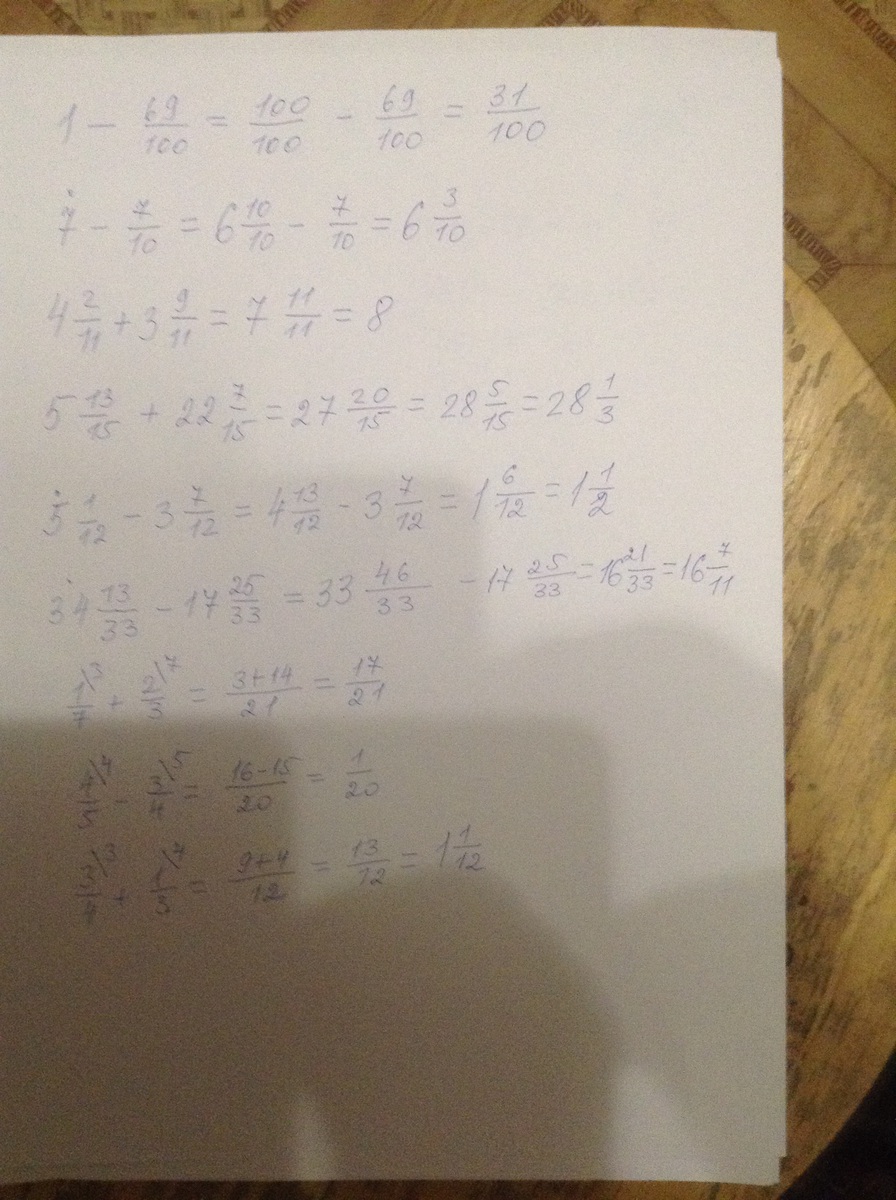 1 - 69/100 = 100/100 - 69/100 = 31/100
7 - 7/10 = 6 10/10 - 7/10 = 6 3/10
4 2/11 + 3 9/11 = 7 11/11 = 8
5 13/15 + 22 7/15 = 27 20/15 = 28 5/15 = 28 1/3
5 1/12 - 3 7/12 = 4 13/12 - 3 7/12 = 1 6/12 = 1 1/2
34 13/33 - 17 25/33 = 33 46/33 - 17 25/33 = 16 21/33 = 16 7/11
1\3/7 + 2\7/3 = 3+14/21 = 17/21
4\4/5 - 3\5/4 = 16-15/20 = 1/20
3\3/4 + 1\4/3 = 9+4/12 = 13/12 = 1 1/12